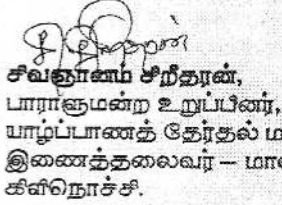 சிவஞானம் சிறீதரன்,
பாராளுமன்ற உறுப்பினர்,
யாழ்ப்பாணத் தேர்தல் ம
இணைத்தலைவர் – மா
கிளிநொச்சி.